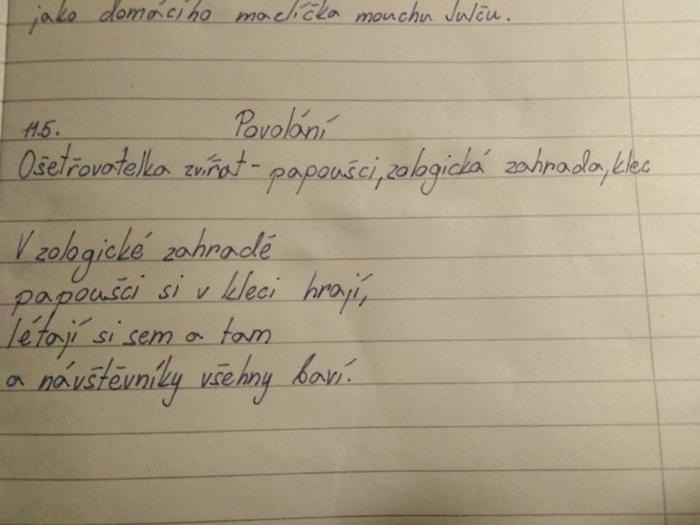 jako domácího maclíčka mouchu Julču.
11.5. Povolání
Ošetřovatelka zvířat - papoušci, zologická zahrada, klec
V zologické zahradě
papoušci si v kleci hrají,
létají si sem a tam
a návštěvníky všehny baví.